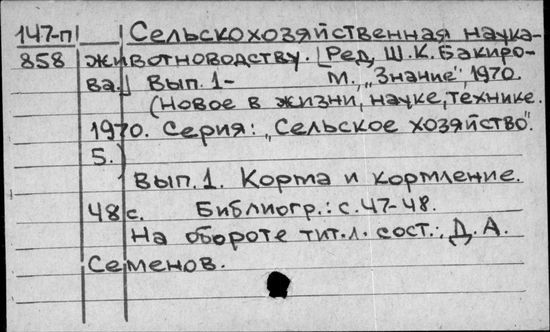 147-п Сельскохозяйственная наука-
858 животноводству. [Ред, Ш.К. Бакиро-
ва.] Вып. 1- М., „Знание", 1970.
(Новое в жизни, науке, технике.
1970. Серия: „Сельское хозяйство".
5.)
Вып. 1. Корма и кормление.
48 с. Библиогр.: с. 47-48.
На обороте тит. л. сост.: Д. А.
Семенов.